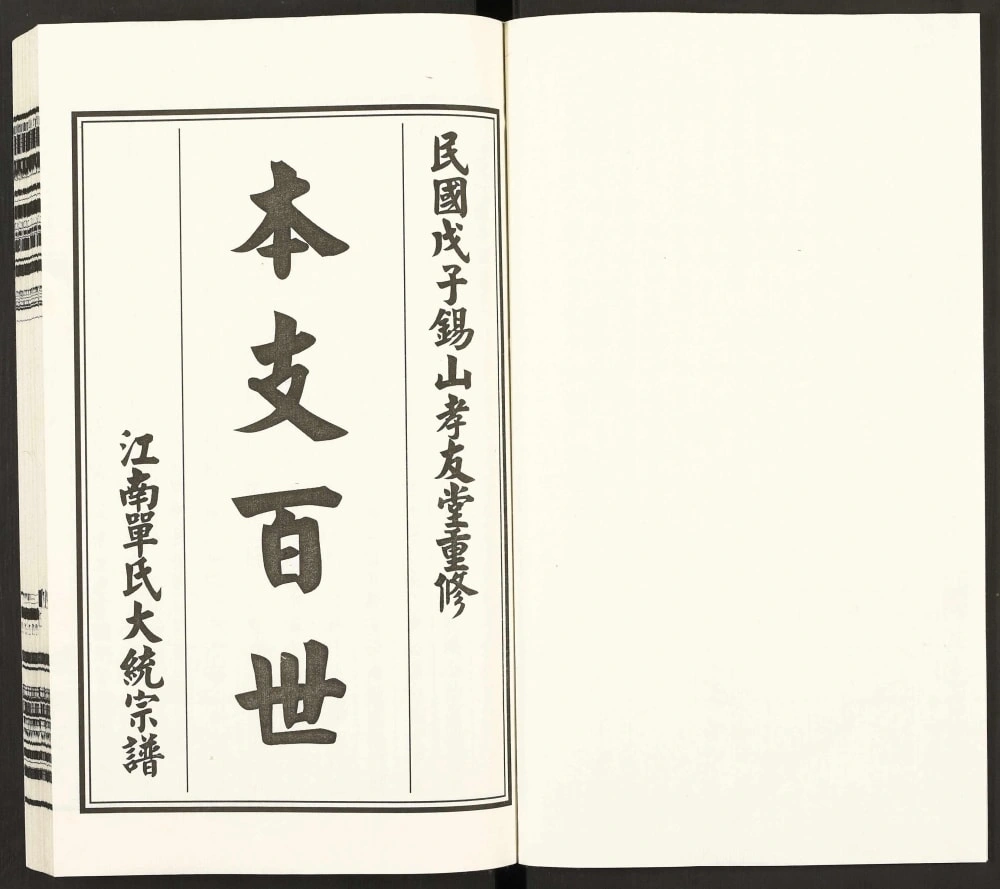 民國戊子錫山孝友堂重修
本支百世
江南單氏大統宗譜